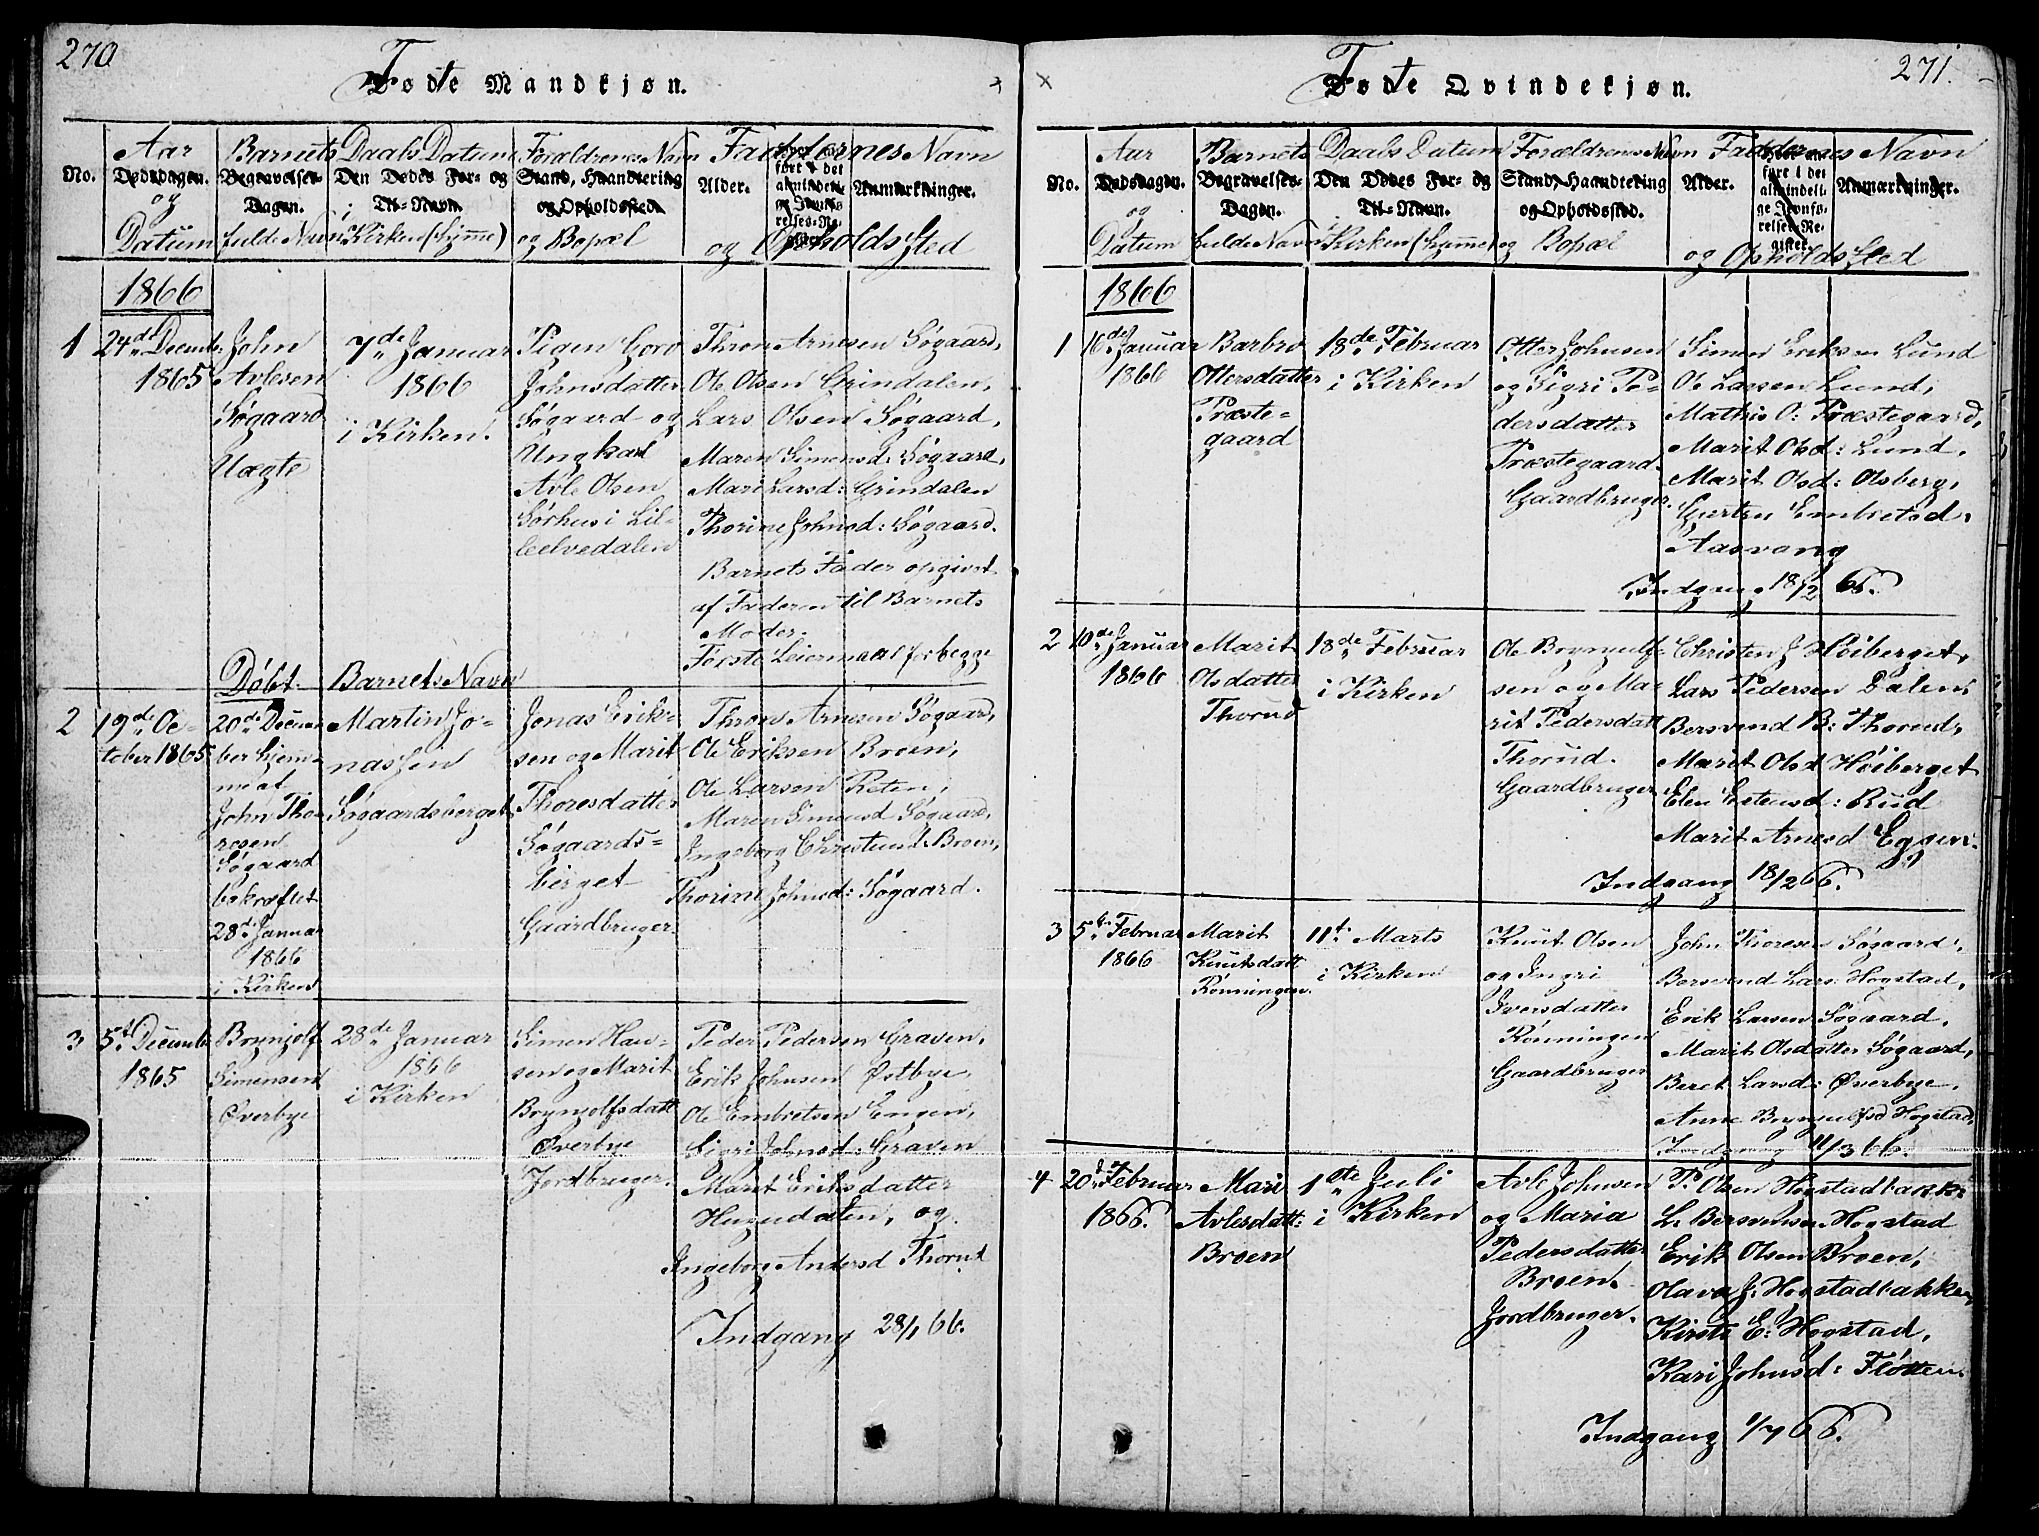 270
Fødte Mandkjøn.
No.
Aar og Datum
Barnets fulde Navn
Daabs Datum i Kirken (hjemme)
Forældrenes Navn og Bopæl
Faddernes Navn og Opholdsted
Dødsdagen.
Begravelses-Dagen.
Den Dødes For- og Til-Navn.
Stand, Haandtering og Opholdssted.
Alder.
Anmærkninger.
1866
1
24de Decemb:
1865
John
Avlesen
Søgaard
Uægte
7de Januar
1866
i Kirken.
Pigen Goro
Johnsdatter
Søgaard og
Ungkarl
Avle Olsen
Sørhus i Lil-
leelvedalen
Thron Arnesen Søgaard,
Ole Olsen Grindalen,
Lars Olsen Søgaard,
Maren Simensd: Søgaard,
Mari Larsd: Grindalen
Thorine Johnsd: Søgaard.
Barnets Fader opgivet
af Faderen til Barnets
Moder.
Første Leiermaal for begge
Døbt.
Barnets Navn
2
19de Oc-
tober 1865
20de Decem-
ber hjem-
me af
John Tho-
resen
Søgaard
bekræftet
28de Januar
1866
i Kirken
Martin Jo-
nassen
Søgaardsberget
Jonas Erik-
sen og Marit
Thoresdatter
Søgaards-
berget
Gaardbruger.
Thron Arnesen Søgaard,
Ole Eriksen Broen,
Ole Larsen Reten,
Maren Simensd Søgaard,
Ingeborg Christensd: Broen,
Thorine Johnsd: Søgaard.
3
5te Decemb:
1865
Brynjolf
Simensen
Øverbye
28de Januar
1866
i Kirken
Simen Han-
sen og Marit
Brynjolfsdatt
Øverbye
Jordbruger.
Peder Pedersen Graven,
Erik Johnsen Østbye,
Ole Embretsen Engen,
Sigri Johnsd: Graven
Marit Eriksdatter
og
Ingeborg Andersd Thorud
Indgang 28/1 66.
271.
Fødte Qvindekjøn.
No.
Aar og Datum
Barnets fulde Navn
Daabs Datum i Kirken (hjemme)
Forældrenes Navn og Bopæl
Faddernes Navn og Opholdsted
Dødsdagen.
Begravelses-Dagen.
Den Dødes For- og Til-Navn.
Stand, Haandtering og Opholdssted.
Alder.
Anmærkninger.
1866
1
16de Januar
1866
Barbro
Ottersdatter
Præste-
gaard
18de Februar
i Kirken
Otter Johnsen
og Sigri Pe-
dersdatter
Præstegaard
Gaardbruger.
Simen Eriksen Lund
Ole Larsen Lund,
Mathis O: Præstegaard,
Marit Olsd: Lund,
Marit Olsd: Olsberg,
Embretsd:
Aasvang
Indgang 18/2 66.
2
10de Januar
1866
Marit
Olsdatter
Thorud
18de Februar
i Kirken
Ole Brynjulf-
sen og Ma-
rit Pedersdatt
Thorud.
Gaardbruger
Christen J Høiberget,
Lars Pedersen Dalen,
Bersvend B: Thorud,
Marit Olsd Høiberget
Elen Estensd: Rud
Marit Arnesd Eggen.
Indgang 18/2 66.
3
5te Februar
1866
Marit
Knutsdatt
Rønningen.
11te Marts
i Kirken
Knut Olsen
og Ingri
Iversdatter
Rønningen
Gaardbruger
John Thoresen Søgaard,
Bersvend Lars: Hogstad,
Erik Larsen Søgaard,
Marit Olsdatter Søgaard,
Beret Larsd: Øverbye,
Anne Brynjulfsd Hogstad,
Indgang 11/3 66.
4
20de Februar
1866.
Mari
Avlesdatt:
Broen
1ste Juli
i Kirken
Avle Johnsen
og Maria
Pedersdatter
Broen.
Jordbruger.
P. Olsen Hogstadbakke
L: Bersvensen Hogstad
Erik Olsen Broen,
Olava J: Hogstadbakken,
Kirsti E: Hogstad,
Kari Johnsd: Fløtten.
Indgang 1/7 66.